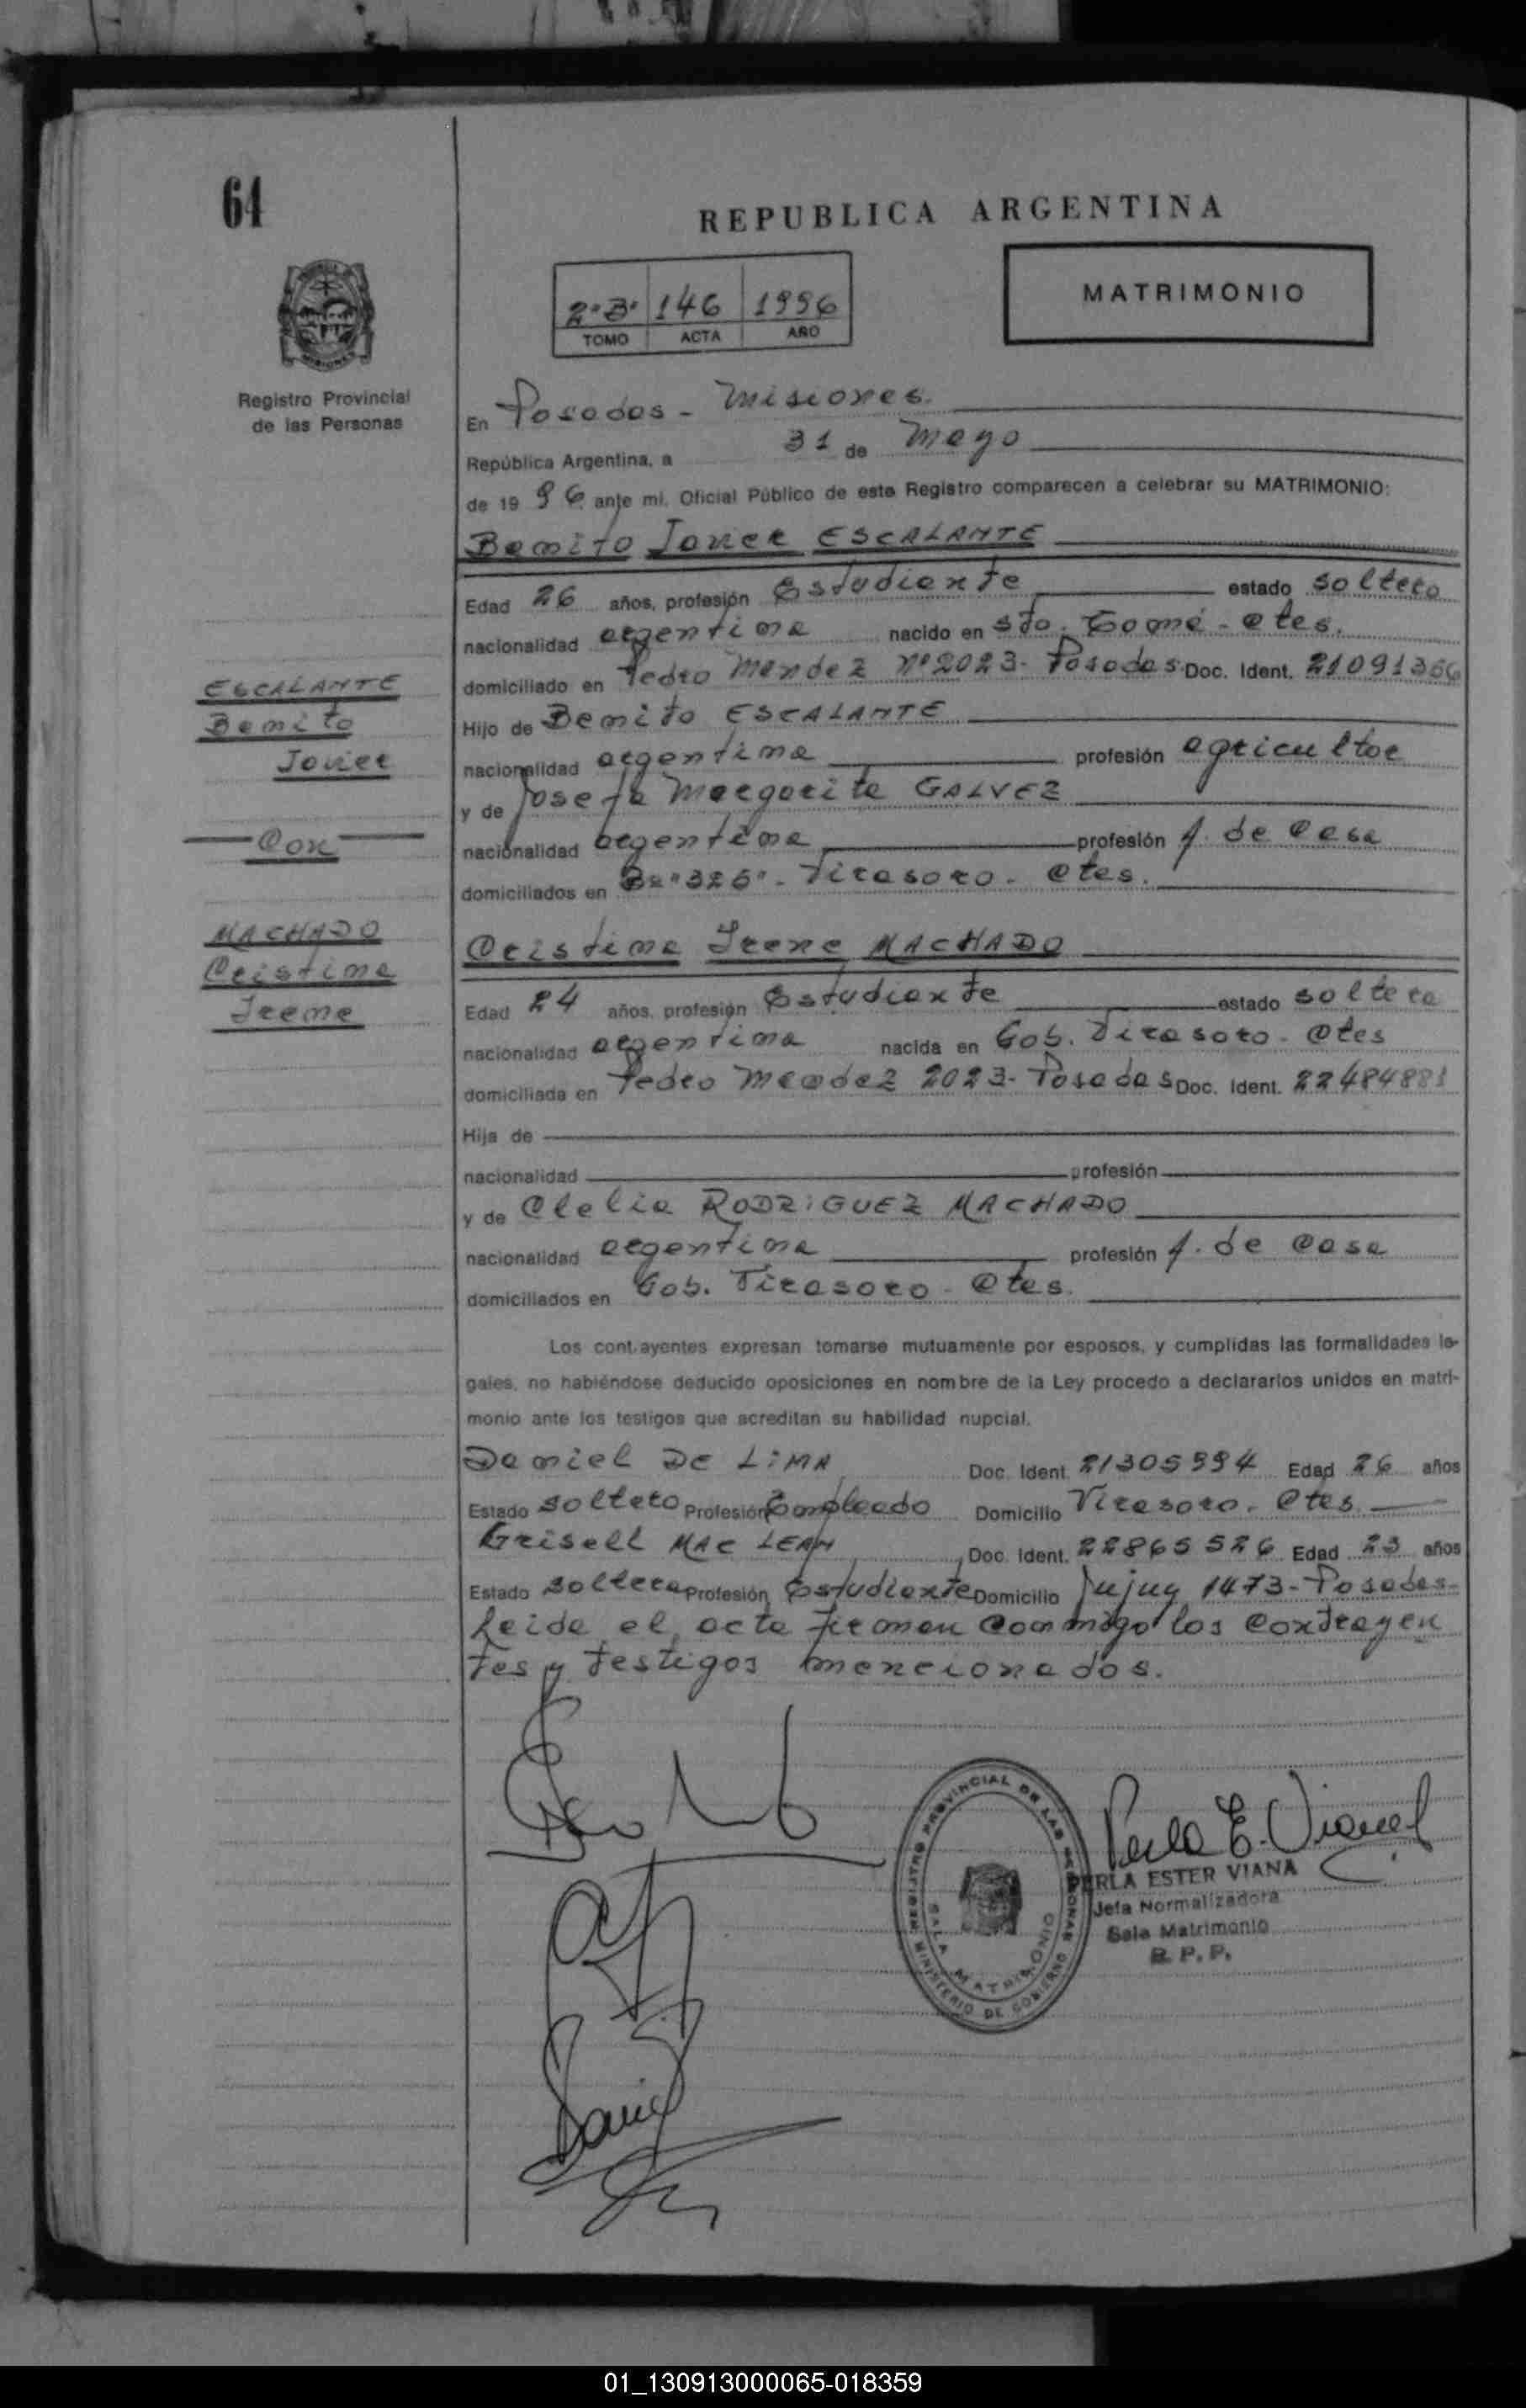 64
REPUBLICA ARGENTINA
2º B' 146 1996
TOMO ACTA AÑO
MATRIMONIO
Registro Provincial
de las Personas
En Posadas - Misiones.
República Argentina, a 31 de Mayo
de 19 96 ante mi, Oficial Público de este Registro comparecen a celebrar su MATRIMONIO:
Benito Javier ESCALANTE
Edad 26 años, profesión Estudiante estado soltero
nacionalidad argentina nacido en Sto. Tomé - Ctes.
domiciliado en Pedro Mendez Nº 2023 - Posadas Doc. Ident. 21091366
Hijo de Benito ESCALANTE
nacionalidad argentina profesión agricultor
y de Josefa Margarita GALVEZ
nacionalidad argentina profesión A. de Casa
domiciliados en Bº "326" - Virasoro - Ctes.
ESCALANTE
Benito
Javier
Con
MACHADO
Cristina
Irene
Cristina Irene MACHADO
Edad 24 años, profesión Estudiante estado soltera
nacionalidad argentina nacida en Gob. Virasoro - Ctes
domiciliada en Pedro Mendez 2023 - Posadas Doc. Ident. 22484881
Hija de
nacionalidad profesión
y de Clelia RODRIGUEZ MACHADO
nacionalidad argentina profesión A. de Casa
domiciliados en Gob. Virasoro - Ctes.
Los contrayentes expresan tomarse mutuamente por esposos, y cumplidas las formalidades le-
gales, no habiéndose deducido oposiciones en nombre de la Ley procedo a declararlos unidos en matri-
monio ante los testigos que acreditan su habilidad nupcial.
Daniel DE LIMA Doc. Ident. 21305994 Edad 26 años
Estado soltero Profesión Empleado Domicilio Virasoro - Ctes.
Grisell MAC LEAN Doc. Ident. 22865526 Edad 23 años
Estado soltera Profesión Estudiante Domicilio Jujuy 1473 - Posadas -
Leida el acta firman conmigo los contrayen
tes y testigos mencionados.
REGISTRO PROVINCIAL DE LAS PERSONAS
SALA MATRIMONIO
MINISTERIO DE GOBIERNO
Perla E. Viana
PERLA ESTER VIANA
Jefa Normalizadora
Sala Matrimonio
R. P. P.
Daniel
01_130913000065-018359